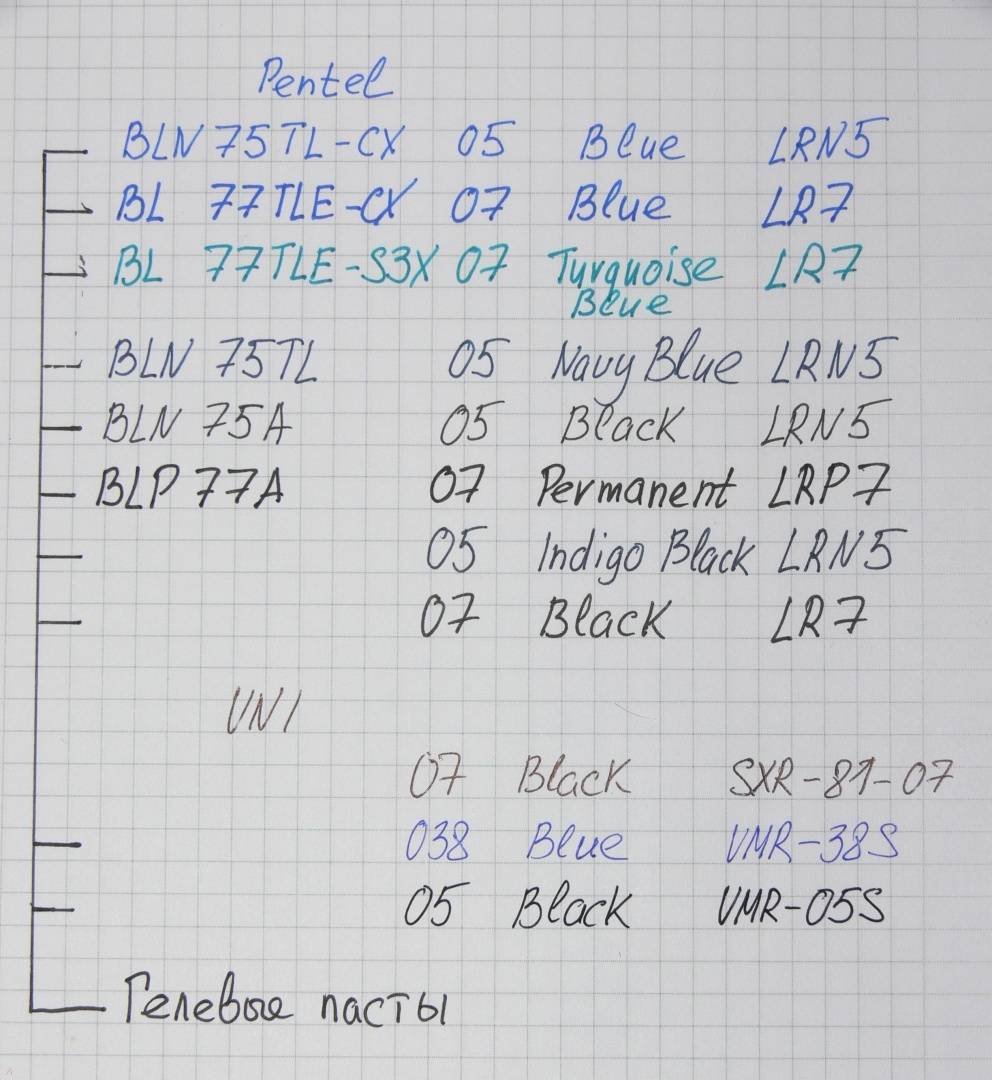 Pentel
BLN 75 TL-CX 05 Blue LRN5
BL 77 TLE-CX 07 Blue LR7
BL 77TLE-S3X 07 Turquoise LR7
Blue
BLN 75TL 05 Navy Blue LRN5
BLN 75A 05 Black LRN5
BLP 77A 07 Permanent LRP7
05 Indigo Black LRN5
07 Black LR7
UNI
07 Black SXR-81-07
038 Blue UMR-38S
05 Black UMR-05S
Гелевые пасты